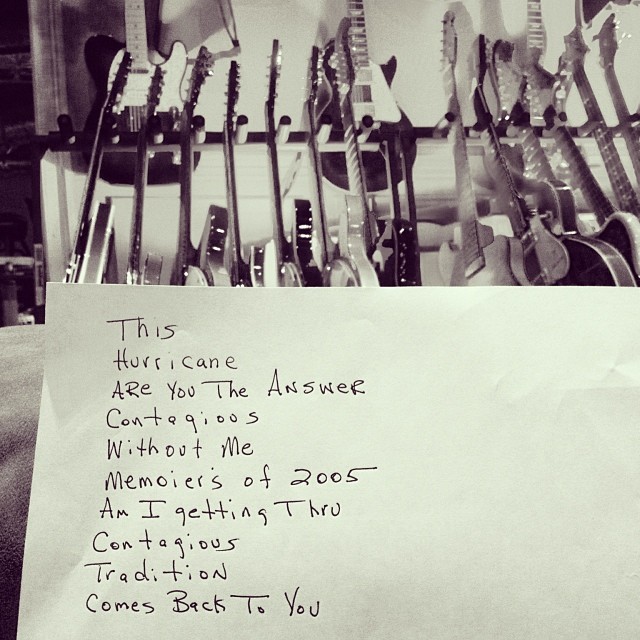 This
Hurricane
ARE You The Answer
Contagious
Without Me
Memoier's of 2005
Am I getting Thru
Contagious
Tradition
Comes Back To You